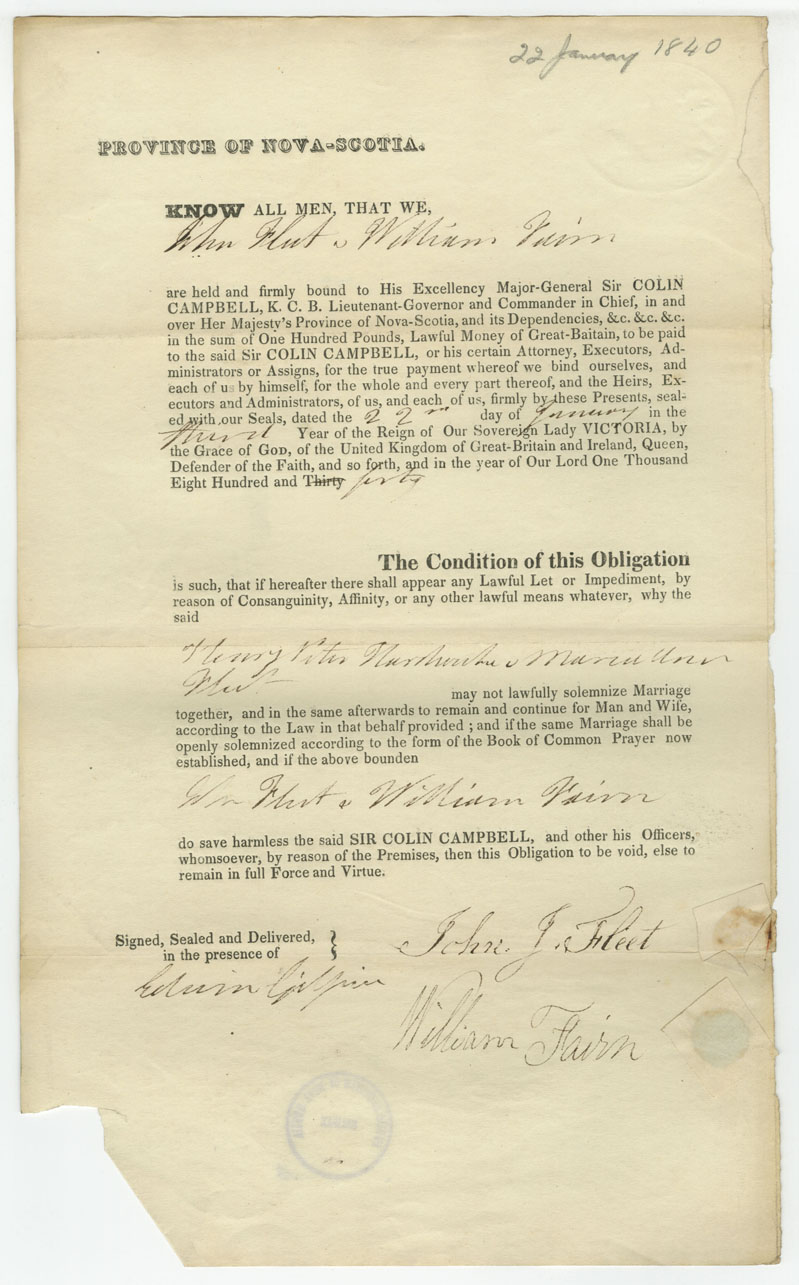 22 January 1840
PROVINCE OF NOVA-SCOTIA.
KNOW ALL MEN, THAT WE,
John Fleet & William Fairn
are held and firmly bound to His Excellency Major-General Sir COLIN
CAMPBELL, K. C. B. Lieutenant-Governor and Commander in Chief, in and
over Her Majesty's Province of Nova-Scotia, and its Dependencies, &c. &c. &c.
in the sum of One Hundred Pounds, Lawful Money of Great-Baitain, to be paid
to the said Sir COLIN CAMPBELL, or his certain Attorney, Executors, Ad-
ministrators or Assigns, for the true payment whereof we bind ourselves, and
each of us by himself, for the whole and every part thereof, and the Heirs, Ex-
ecutors and Administrators, of us, and each of us, firmly by these Presents, seal-
ed with our Seals, dated the 22nd day of January in the
third Year of the Reign of Our Sovereign Lady VICTORIA, by
the Grace of GOD, of the United Kingdom of Great-Britain and Ireland, Queen,
Defender of the Faith, and so forth, and in the year of Our Lord One Thousand
Eight Hundred and Thirty forty
The Condition of this Obligation
is such, that if hereafter there shall appear any Lawful Let or Impediment, by
reason of Consanguinity, Affinity, or any other lawful means whatever, why the
said
Henry Peter & Maria Ann
Fleet
may not lawfully solemnize Marriage
together, and in the same afterwards to remain and continue for Man and Wife,
according to the Law in that behalf provided ; and if the same Marriage shall be
openly solemnized according to the form of the Book of Common Prayer now
established, and if the above bounden
Jno Fleet & William Fairn
do save harmless the said SIR COLIN CAMPBELL, and other his Officers,
whomsoever, by reason of the Premises, then this Obligation to be void, else to
remain in full Force and Virtue.
Signed, Sealed and Delivered,
in the presence of
John. J. Fleet
Edwin Gilpin
William Fairn